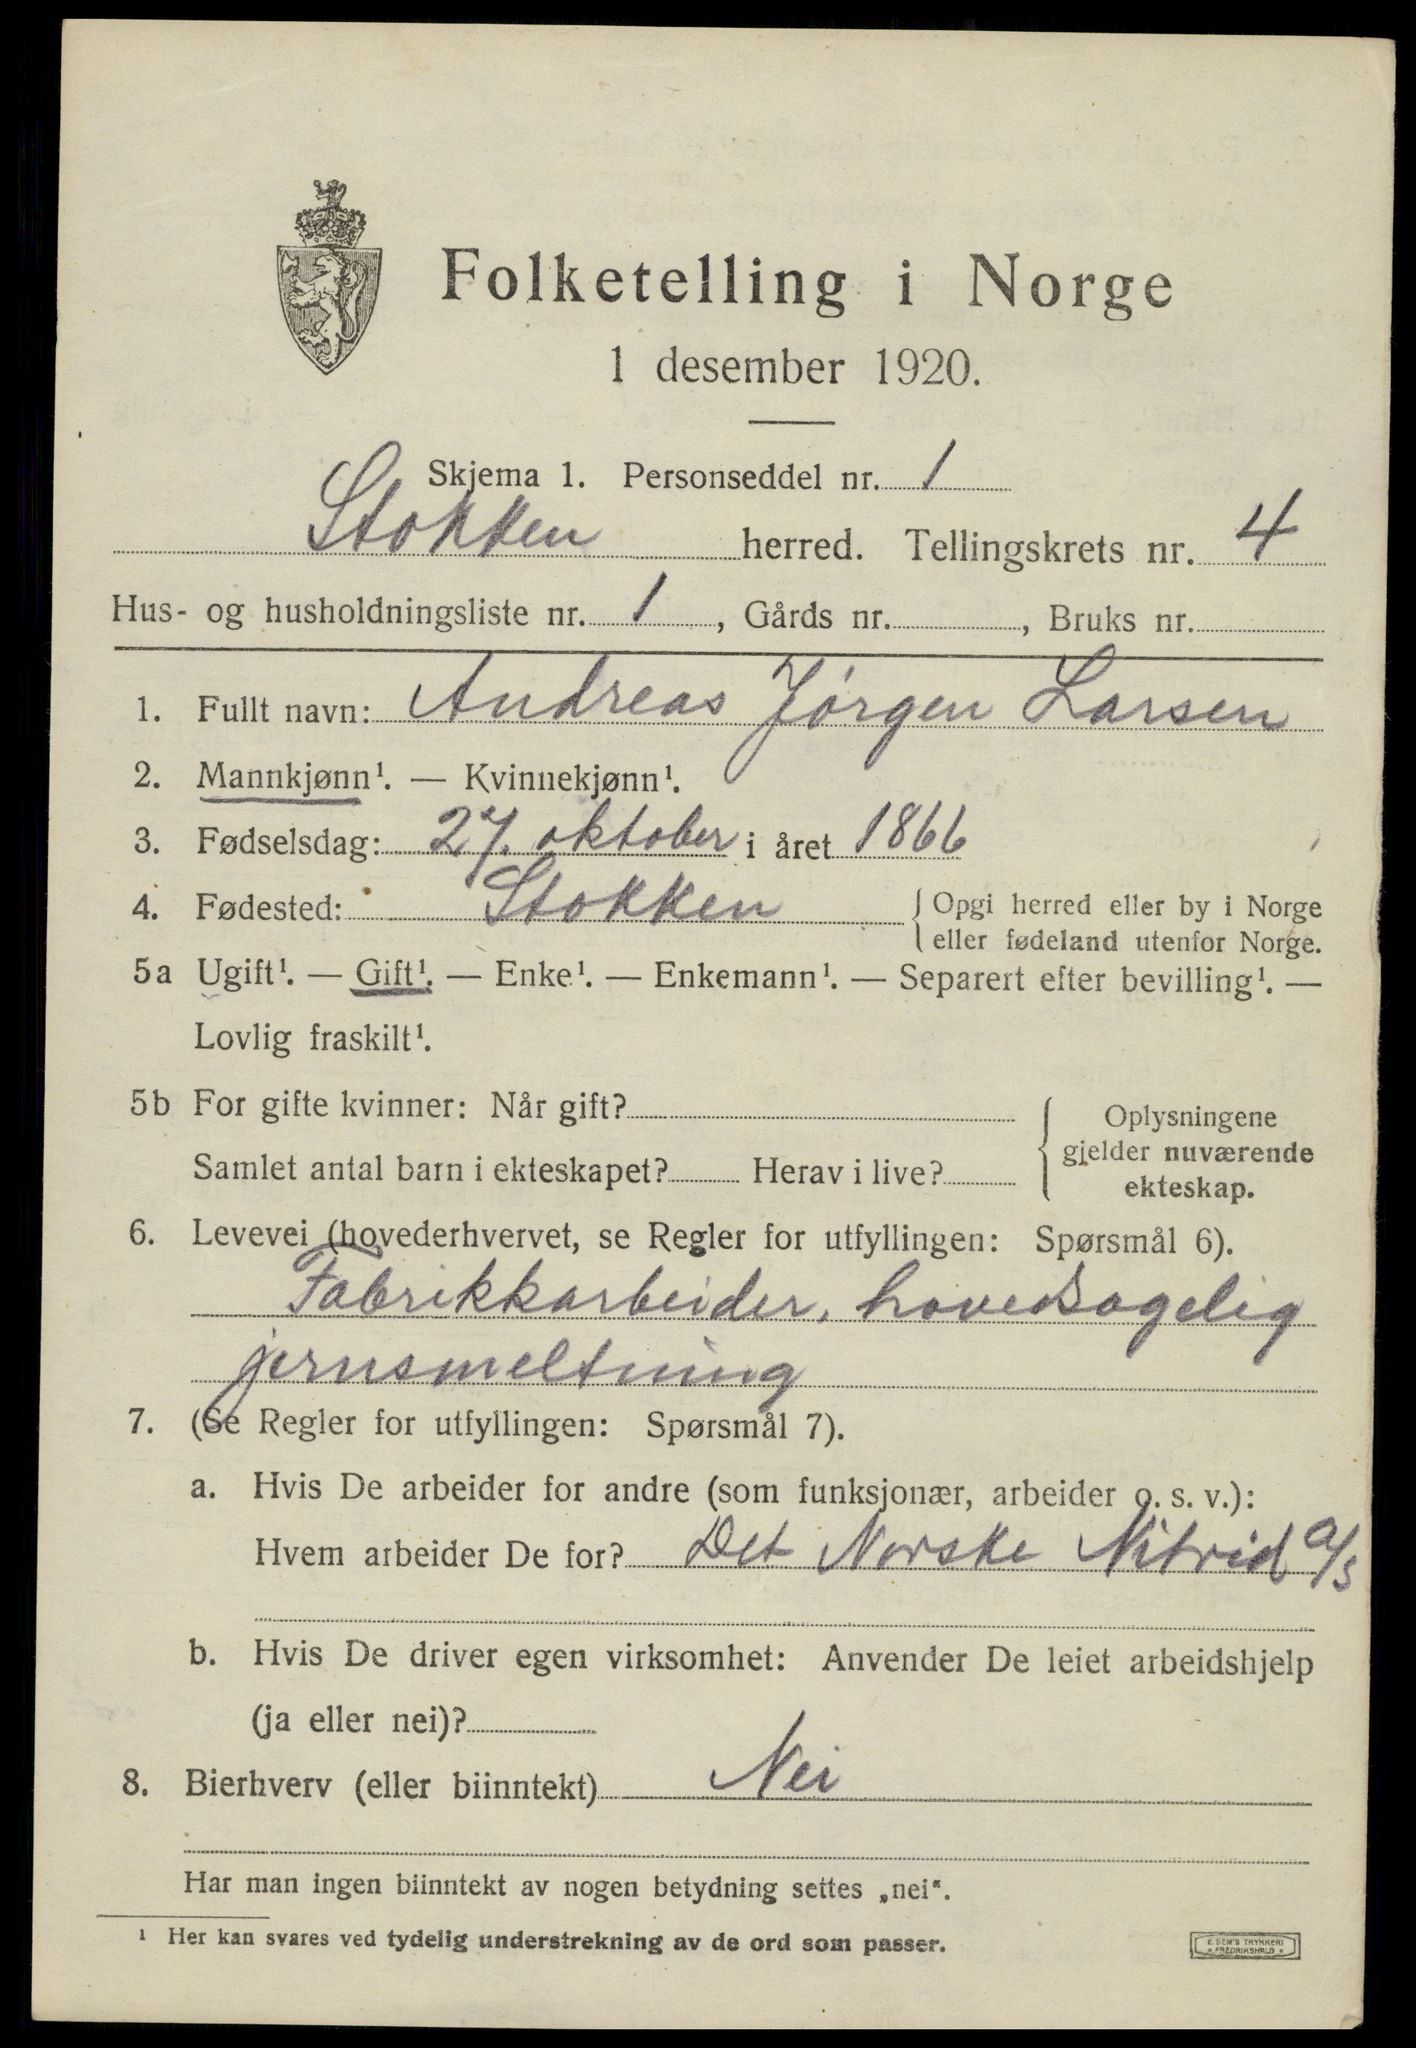 Folketelling i Norge
1 desember 1920.
Skjema 1. Personseddel nr. 1
Stokken herred. Tellingskrets nr. 4
Hus- og husholdningsliste nr. 1, Gårds nr. , Bruks nr.
1. Fullt navn: Andreas Jørgen Larsen
2. Mannkjønn¹. — Kvinnekjønn¹.
3. Fødselsdag: 27. oktober i året 1866
4. Fødested: Stokken { Opgi herred eller by i Norge
eller fødeland utenfor Norge.
5a Ugift¹. — Gift¹. — Enke¹. — Enkemann¹. — Separert efter bevilling¹. —
Lovlig fraskilt¹.
5b For gifte kvinner: Når gift?
Samlet antal barn i ekteskapet? Herav i live?
{ Oplysningene
gjelder nuværende
ekteskap.
6. Levevei (hovederhvervet, se Regler for utfyllingen: Spørsmål 6).
Fabrikkarbeider, hovedsagelig
jernsmeltning
7. (Se Regler for utfyllingen: Spørsmål 7).
a. Hvis De arbeider for andre (som funksjonær, arbeider o. s. v.):
Hvem arbeider De for? Det Norske Nitrid a/s
b. Hvis De driver egen virksomhet: Anvender De leiet arbeidshjelp
(ja eller nei)?
8. Bierhverv (eller biinntekt) Nei
Har man ingen biinntekt av nogen betydning settes „nei“.
¹ Her kan svares ved tydelig understrekning av de ord som passer.
E. SEM'S TRYKKERI
* FREDRIKSHALD *